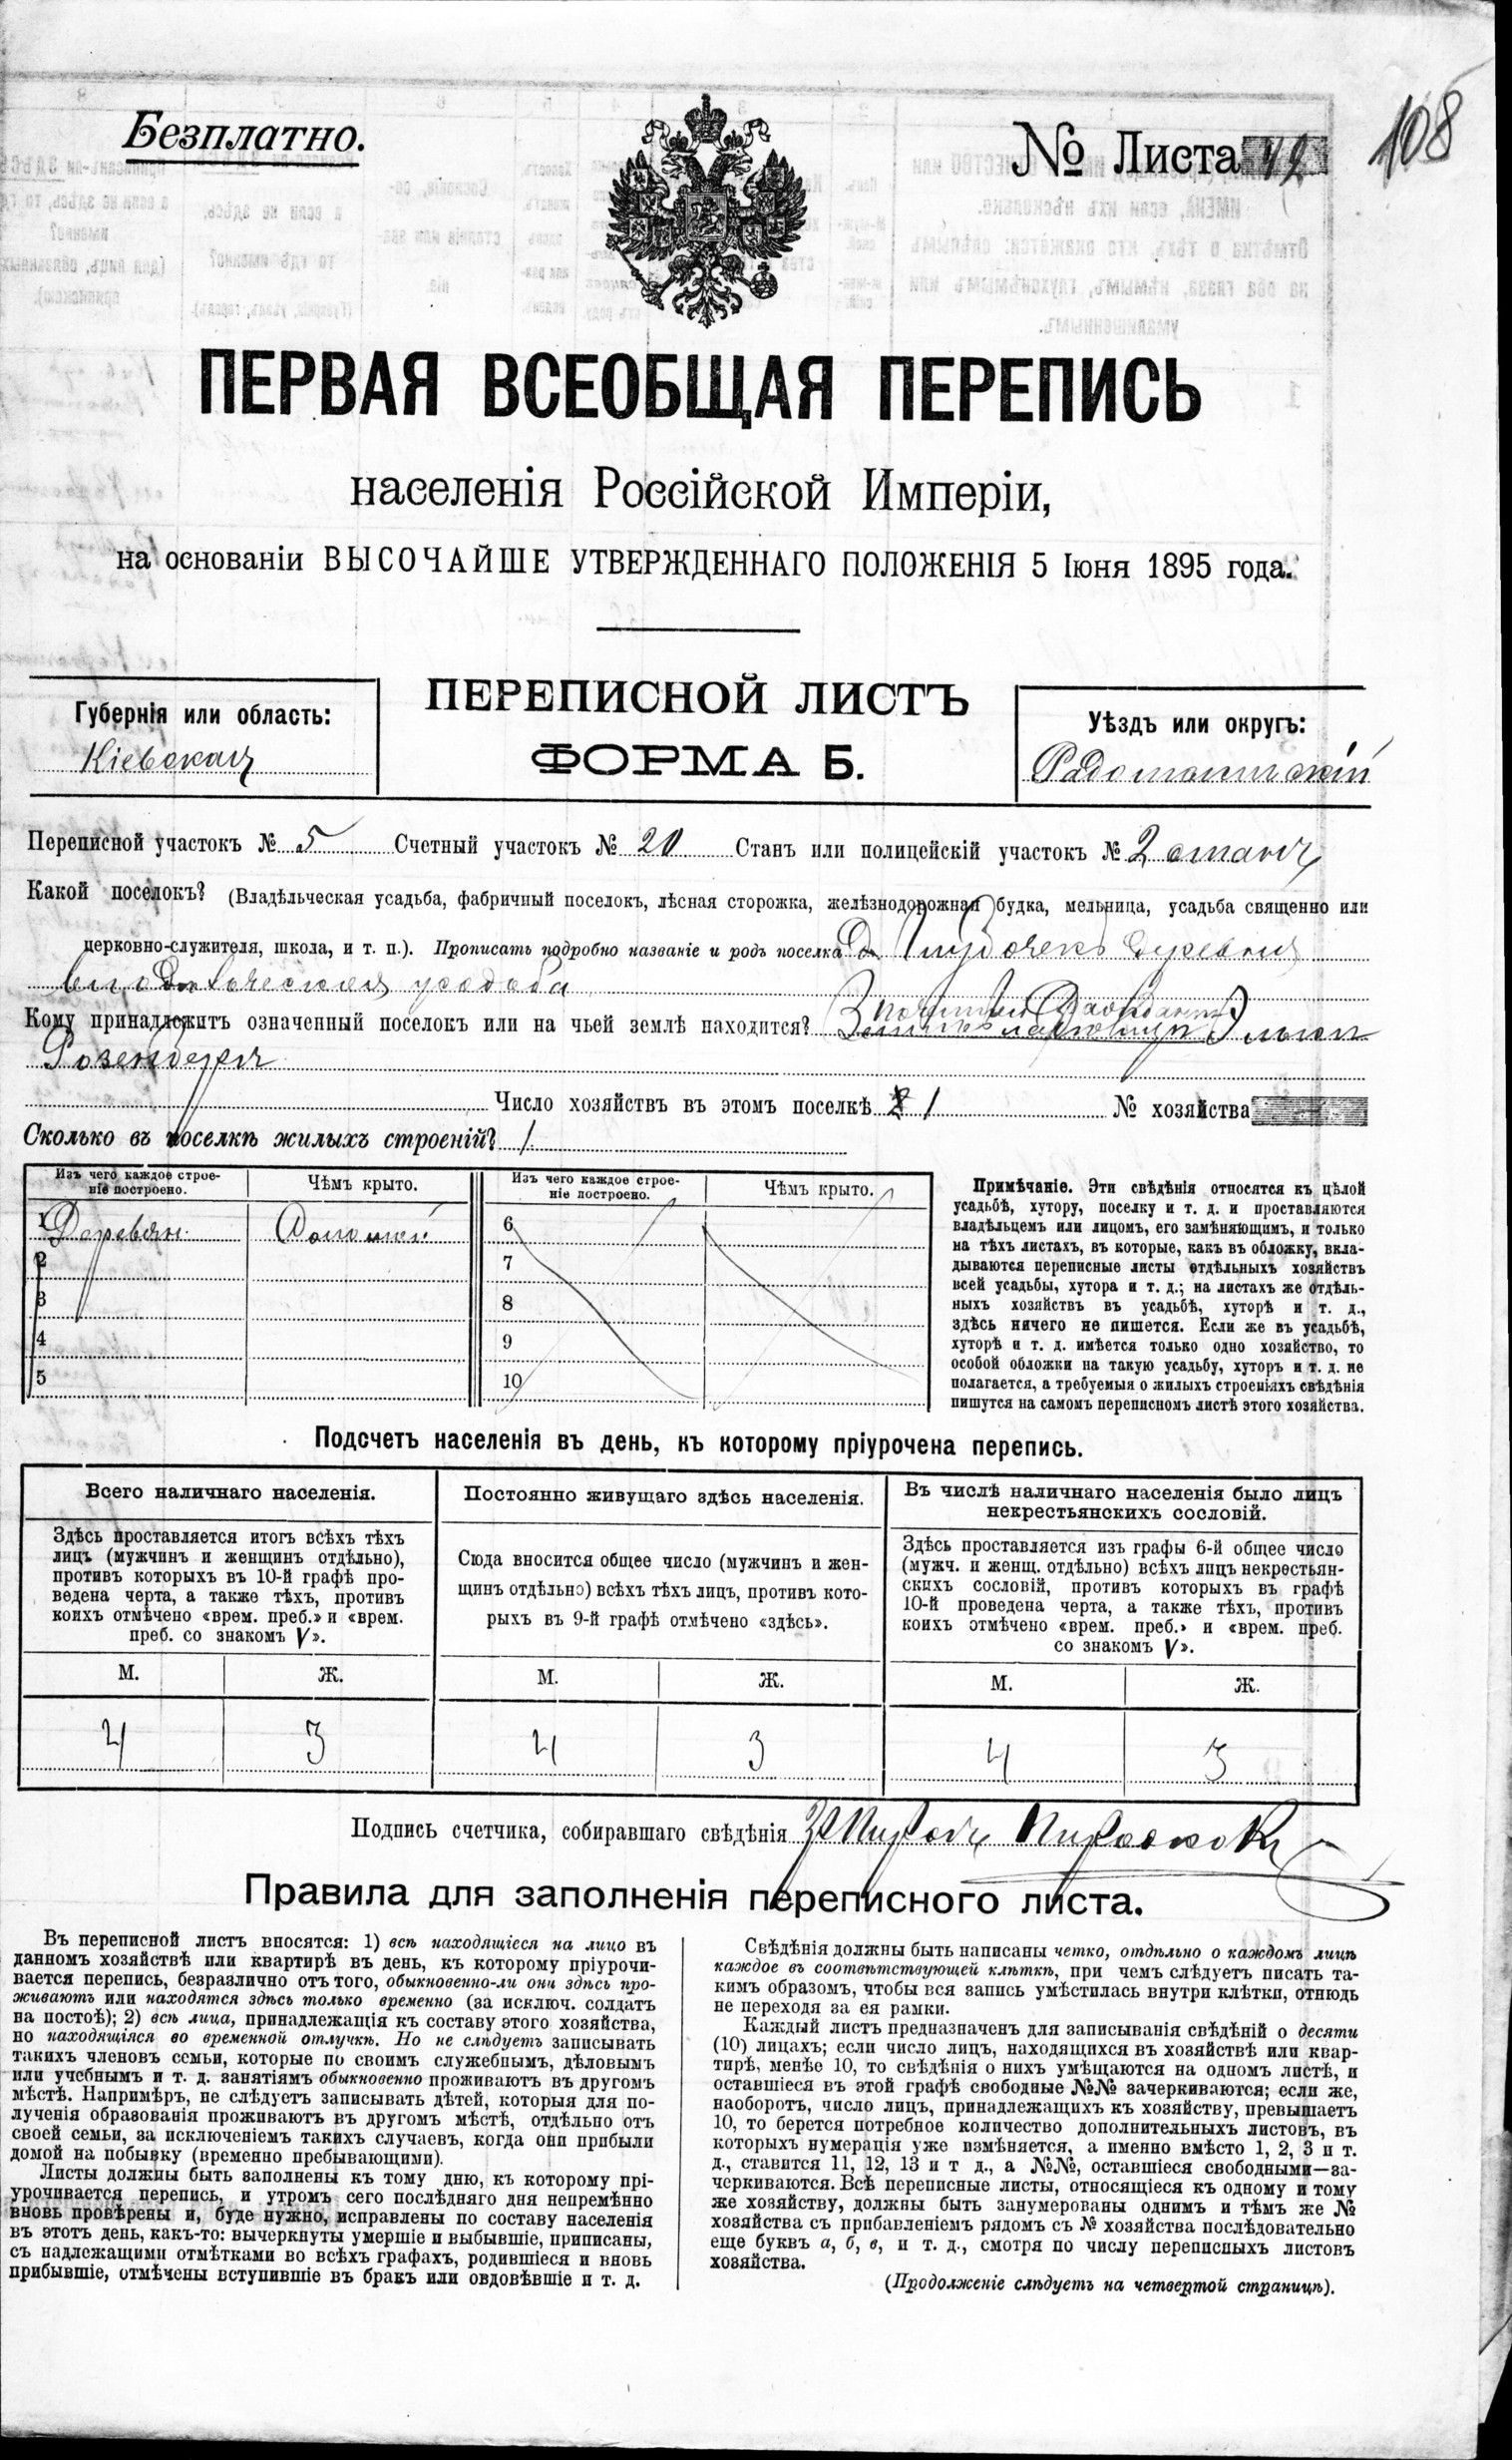 Безплатно.
№ Листа 42
108
ПЕРВАЯ ВСЕОБЩАЯ ПЕРЕПИСЬ
населенія Россійской Имперіи,
на основаніи ВЫСОЧАЙШЕ УТВЕРЖДЕННАГО ПОЛОЖЕНІЯ 5 Іюня 1895 года.
Губернія или область:
Кіевская
ПЕРЕПИСНОЙ ЛИСТЪ
ФОРМА Б.
Уѣздъ или округъ:
Радомысльскій
Переписной участокъ № 5 Счетный участокъ № 20 Станъ или полицейскій участокъ № 2 станъ
Какой поселокъ? (Владѣльческая усадьба, фабричный поселокъ, лѣсная сторожка, желѣзнодорожная будка, мельница, усадьба священно или
церковно-служителя, школа, и т. п.). Прописать подробно названіе и родъ поселка деревня
усадьба
Кому принадлежитъ означенный поселокъ или на чьей землѣ находится?
Розенберга
Число хозяйствъ въ этомъ поселкѣ 1 № хозяйства
Сколько въ поселкѣ жилыхъ строеній? 1
Изъ чего каждое строе-
ніе построено.
Чѣмъ крыто.
Изъ чего каждое строе-
ніе построено.
Чѣмъ крыто.
1 Деревян. Соломой
2
3
4
5
6
7
8
9
10
Примѣчаніе. Эти свѣдѣнія относятся къ цѣлой
усадьбѣ, хутору, поселку и т. д. и проставляются
владѣльцемъ или лицомъ, его замѣняющимъ, и только
на тѣхъ листахъ, въ которые, какъ въ обложку, вкла-
дываются переписные листы отдѣльныхъ хозяйствъ
всей усадьбы, хутора и т. д.; на листахъ же отдѣль-
ныхъ хозяйствъ въ усадьбѣ, хуторѣ и т. д.,
здѣсь ничего не пишется. Если же въ усадьбѣ,
хуторѣ и т. д. имѣется только одно хозяйство, то
особой обложки на такую усадьбу, хуторъ и т. д. не
полагается, а требуемыя о жилыхъ строеніяхъ свѣдѣнія
пишутся на самомъ переписномъ листѣ этого хозяйства.
Подсчетъ населенія въ день, къ которому пріурочена перепись.
Всего наличнаго населенія.
Здѣсь проставляется итогъ всѣхъ тѣхъ
лицъ (мужчинъ и женщинъ отдѣльно),
противъ которыхъ въ 10-й графѣ про-
ведена черта, а также тѣхъ, противъ
коихъ отмѣчено «врем. преб.» и «врем.
преб. со знакомъ V».
М. Ж.
4 3
Постоянно живущаго здѣсь населенія.
Сюда вносится общее число (мужчинъ и жен-
щинъ отдѣльно) всѣхъ тѣхъ лицъ, противъ кото-
рыхъ въ 9-й графѣ отмѣчено «здѣсь».
М. Ж.
4 3
Въ числѣ наличнаго населенія было лицъ
некрестьянскихъ сословій.
Здѣсь проставляется изъ графы 6-й общее число
(мужч. и женщ. отдѣльно) всѣхъ лицъ некрестьян-
скихъ сословій, противъ которыхъ въ графѣ
10-й проведена черта, а также тѣхъ, противъ
коихъ отмѣчено «врем. преб.» и «врем. преб.
со знакомъ V».
М. Ж.
4 3
Подпись счетчика, собиравшаго свѣдѣнія
Правила для заполненія переписного листа.
Въ переписной листъ вносятся: 1) всѣ находящіеся на лицо въ
данномъ хозяйствѣ или квартирѣ въ день, къ которому пріурочи-
вается перепись, безразлично отъ того, обыкновенно-ли они здѣсь про-
живаютъ или находятся здѣсь только временно (за исключ. солдатъ
на постоѣ); 2) всѣ лица, принадлежащія къ составу этого хозяйства,
но находящіяся во временной отлучкѣ. Но не слѣдуетъ записывать
такихъ членовъ семьи, которые по своимъ служебнымъ, дѣловымъ
или учебнымъ и т. д. занятіямъ обыкновенно проживаютъ въ другомъ
мѣстѣ. Напримѣръ, не слѣдуетъ записывать дѣтей, которыя для по-
лученія образованія проживаютъ въ другомъ мѣстѣ, отдѣльно отъ
своей семьи, за исключеніемъ такихъ случаевъ, когда они прибыли
домой на побывку (временно пребывающими).
Листы должны быть заполнены къ тому дню, къ которому прі-
урочивается перепись, и утромъ сего послѣдняго дня непремѣнно
вновь провѣрены и, буде нужно, исправлены по составу населенія
въ этотъ день, какъ-то: вычеркнуты умершіе и выбывшіе, приписаны,
съ надлежащими отмѣтками во всѣхъ графахъ, родившіеся и вновь
прибывшіе, отмѣчены вступившіе въ бракъ или овдовѣвшіе и т. д.
Свѣдѣнія должны быть написаны четко, отдѣльно о каждомъ лицѣ
каждое въ соотвѣтствующей клѣткѣ, при чемъ слѣдуетъ писать та-
кимъ образомъ, чтобы вся запись умѣстилась внутри клѣтки, отнюдь
не переходя за ея рамки.
Каждый листъ предназначенъ для записыванія свѣдѣній о десяти
(10) лицахъ; если число лицъ, находящихся въ хозяйствѣ или квар-
тирѣ, менѣе 10, то свѣдѣнія о нихъ умѣщаются на одномъ листѣ, и
оставшіеся въ этой графѣ свободные №№ зачеркиваются; если же,
наоборотъ, число лицъ, принадлежащихъ къ хозяйству, превышаетъ
10, то берется потребное количество дополнительныхъ листовъ, въ
которыхъ нумерація уже измѣняется, а именно вмѣсто 1, 2, 3 и т.
д., ставится 11, 12, 13 и т д., а №№, оставшіеся свободными—за-
черкиваются. Всѣ переписные листы, относящіеся къ одному и тому
же хозяйству, должны быть занумерованы однимъ и тѣмъ же №
хозяйства съ прибавленіемъ рядомъ съ № хозяйства послѣдовательно
еще буквъ а, б, в, и т. д., смотря по числу переписныхъ листовъ
хозяйства.
(Продолженіе слѣдуетъ на четвертой страницѣ).